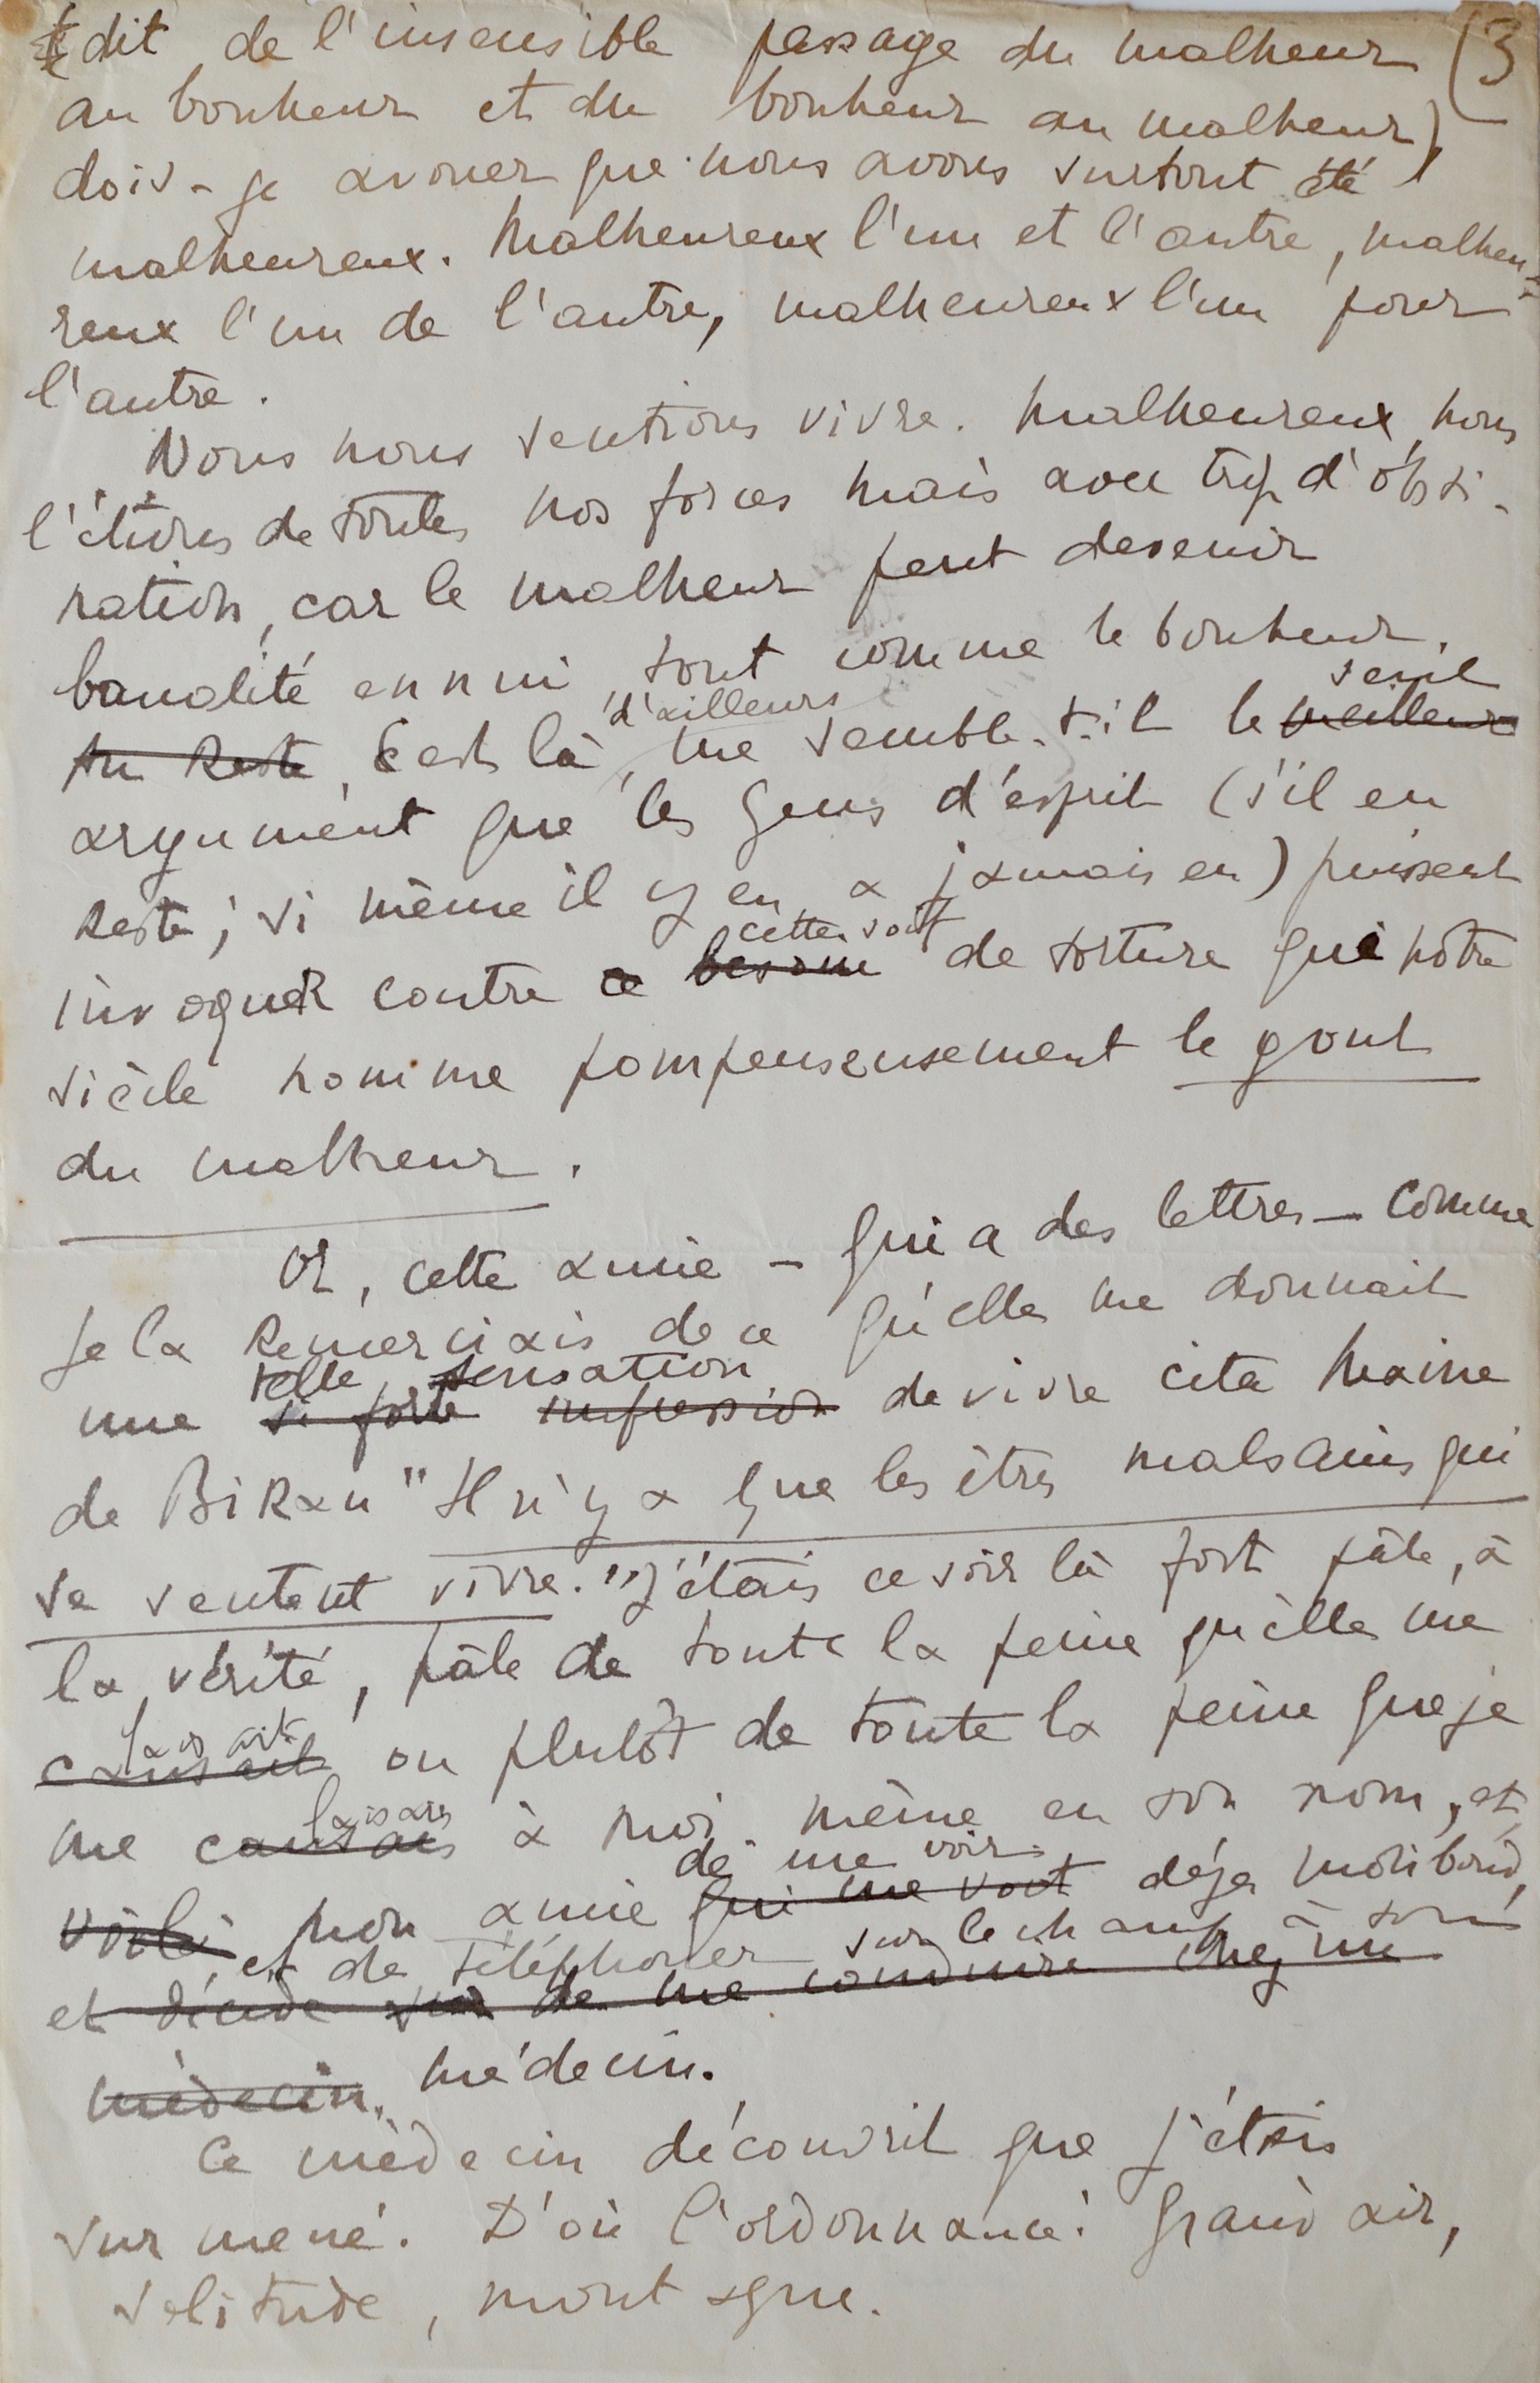 dit de l'insensible passage du malheur (3
au bonheur et du bonheur au malheur)
dois-je avouer que nous avons surtout été
malheureux. Malheureux l'un et l'autre, malheu-
reux l'un de l'autre, malheureux l'un pour
l'autre.
Nous nous sentions vivre. Malheureux, nous
l'étions de toutes nos forces mais avec trop d'obsti-
nation, car le malheur peut devenir
banalité ennui, tout comme le bonheur.
d'ailleurs seul
Au Reste, C'est là, me semble-t-il le meilleur
argument que les gens d'esprit (s'il en
Reste; si même il y en a jamais eu) puissent
cette soif
invoqueR contre ce besoin de torture que notre
siècle nomme pompeusement le gout
du malheur.
OR, cette amie - qui a des lettres - comme
je la Remerciais de ce qu'elle me donnait
telle sensation
une si forte impression de vivre cita Maine
de BiRan "Il n'y a que les êtres malsains qui
se sentent vivre." J'étais ce soir là fort pâle, à
la vérité, pâle de toute la peine qu'elle me
faisait
causait ou plutôt de toute la peine que je
faisais
me causais à moi-même en son nom, et
de me voir
voilà mon amie qui me voit déjà moribond,
et de téléphoner sur le champ à son
et décide de me conduire chez un
médecin. médecin.
Ce médecin découvrit que j'étais
surmené. D'où l'ordonnance: Grand air,
solitude, montagne.